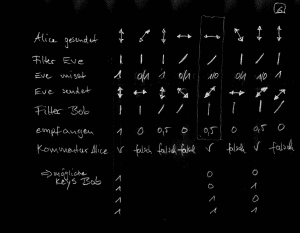 6
Alice gesendet ↕ ⤢ ↕ ↔ ↔ ⤡ ↕ ⤡
Filter Eve | / | / / | / |
Eve misst 1 0/1 1 0/1 1/0 0/1 1/0
Eve sendet
Filter Bob | | / / | / | /
empfangen 1 0 0,5 0 0,5 1 0,5 0
Kommentar Alice V falsch falsch falsch V falsch V falsch
⇒ mögliche 1 0 0
Keys Bob 1 0 1
1 1 0
1 1 1